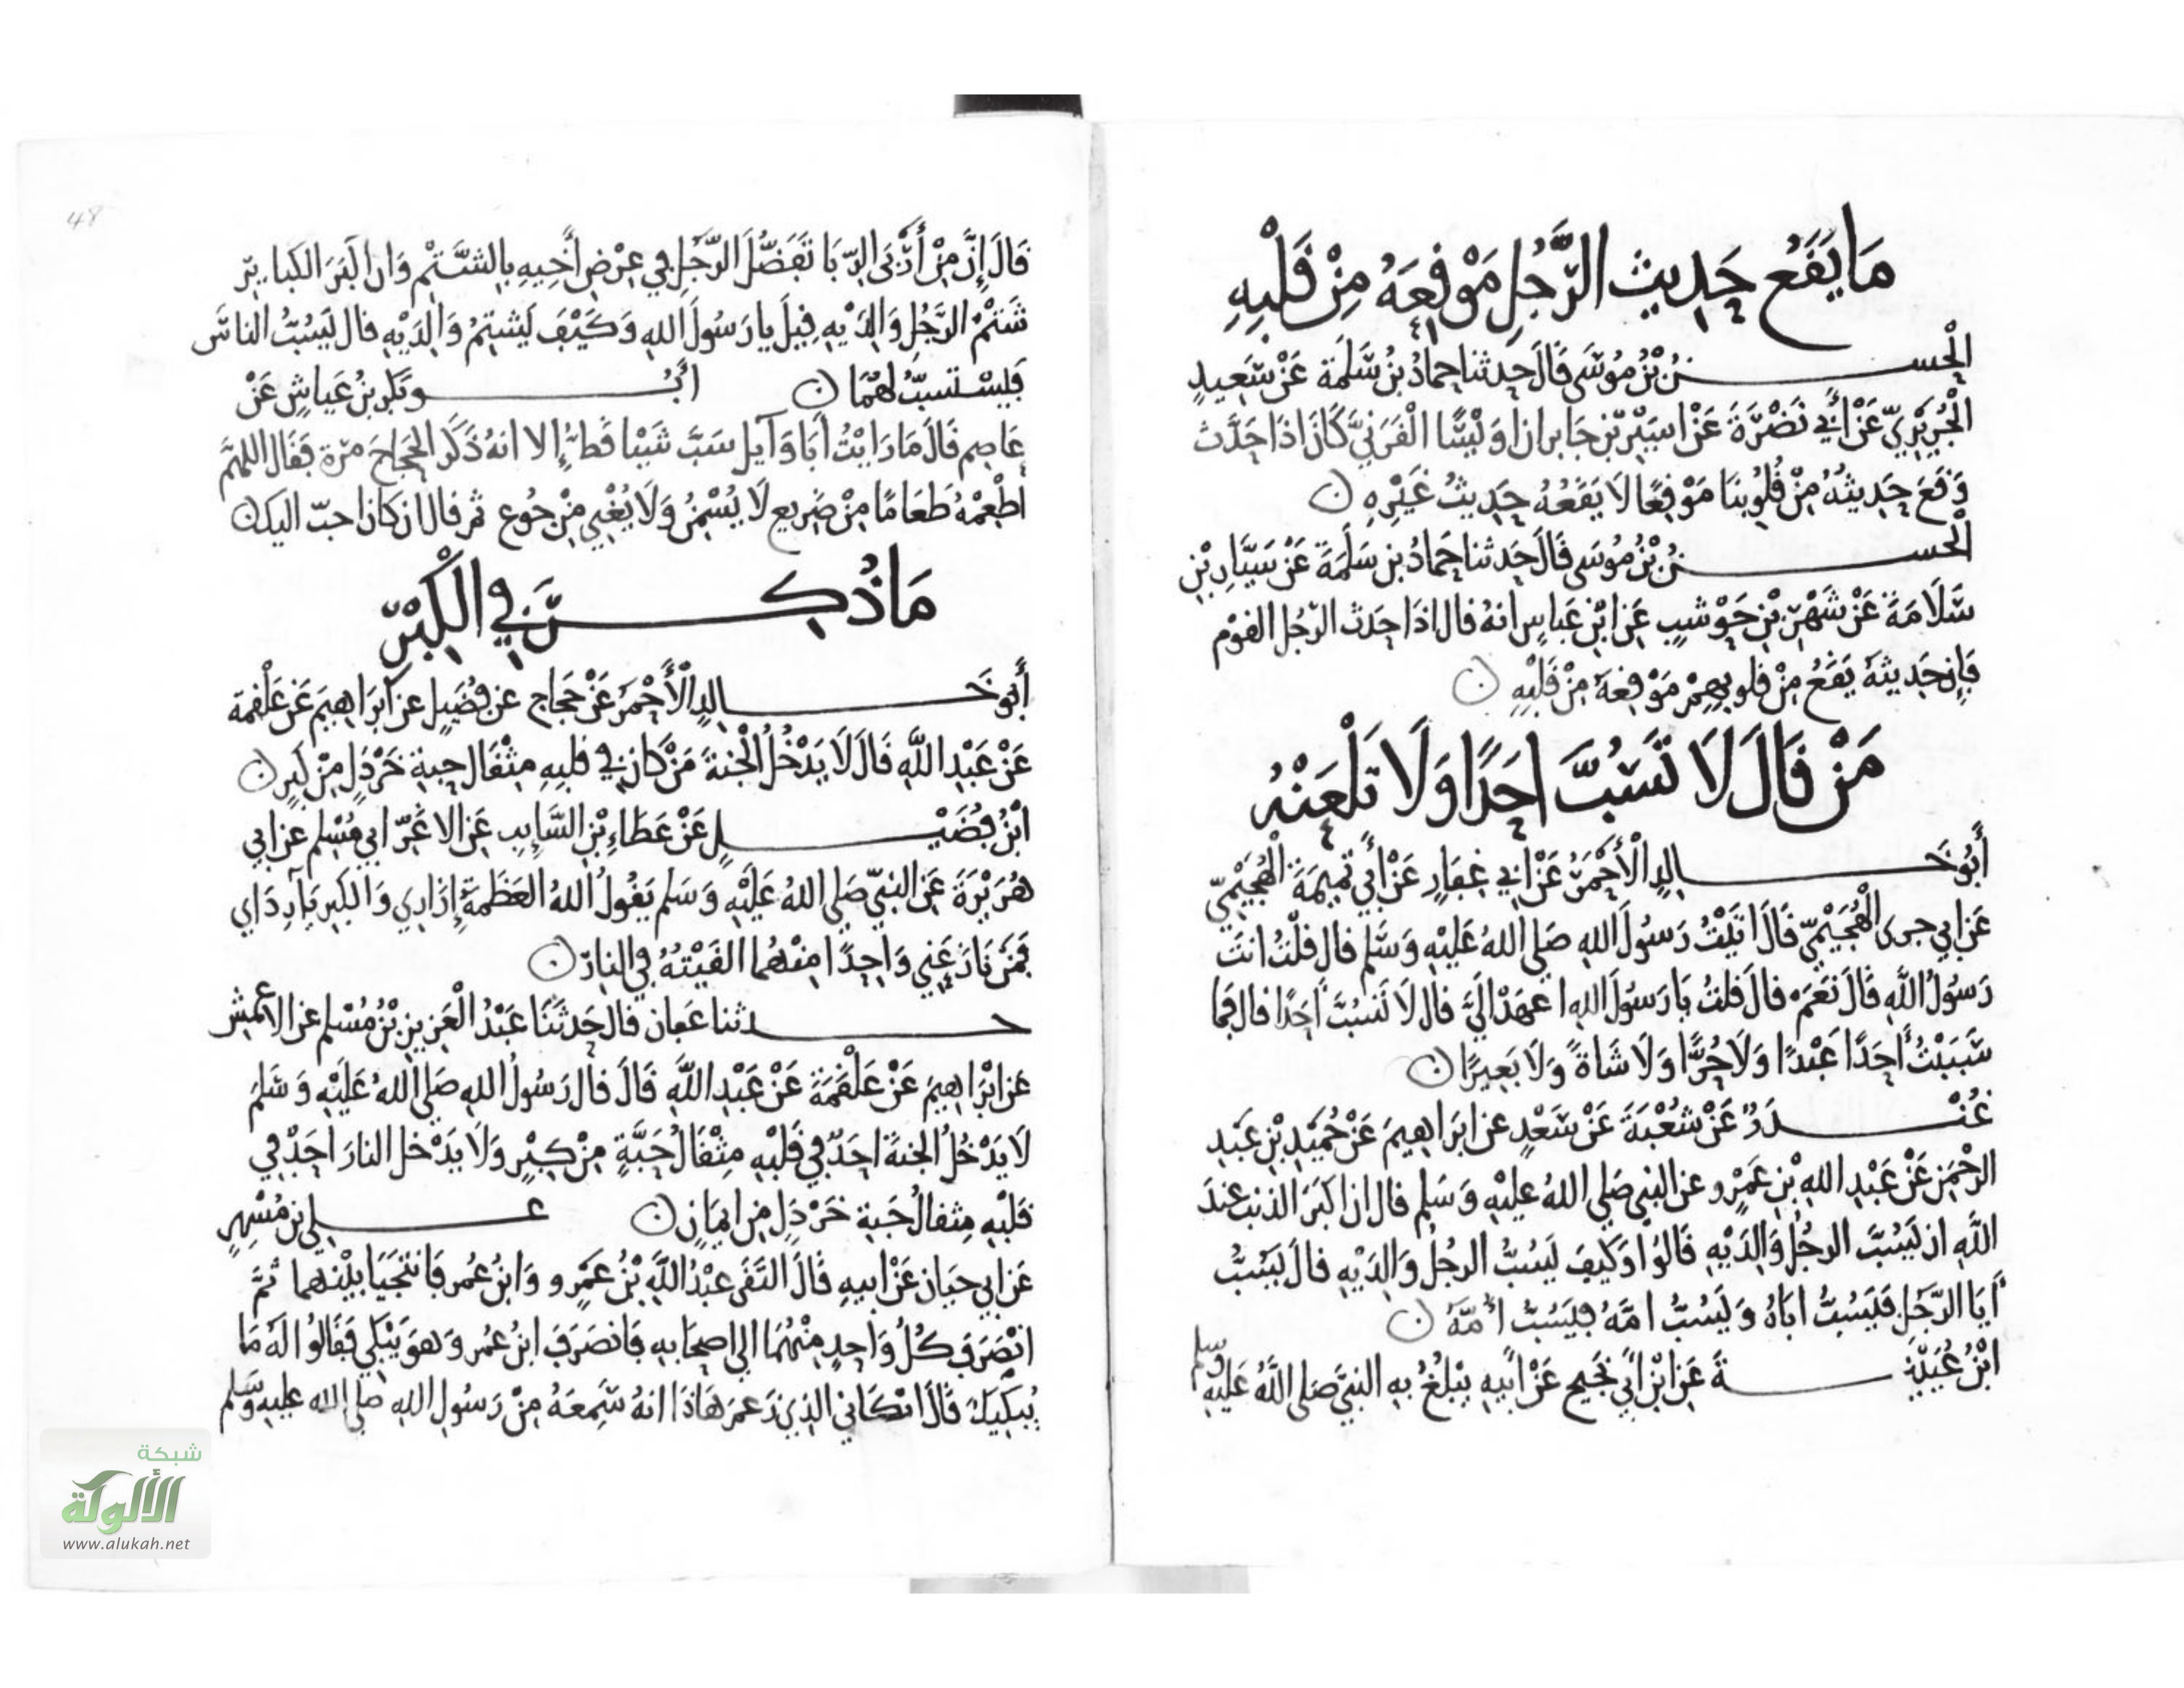 مَا يَقَعُ حَدِيث الرَّجُلِ مَوْقِعَهُ مِنْ قَلْبِهِ
الْحسنُ بْنُ مُوسَى قَالَ حدثنا حمادُ بْنُ سَلَمَة عَنْ سَعِيدٍ
الْجُرَيْرِيِّ عَنْ أَبِي نَضْرَةَ عَنْ اسَيْرِ بْنِ جَابر ان اوَيْسًا الْقَرَنِيَّ كَانَ اذَا حَدَّث
وَقَعَ حَدِيثُهُ مِنْ قُلُوبِنَا مَوْقِعًا لَا يَقَعُهُ حَدِيثُ غَيْرِهِ
الْحسنُ بْنُ مُوسَى قَالَ حَدثنا حَمادُ بن سَلَمَةَ عَنْ سَيَّارِ بْنِ
سَلَامَةَ عَنْ شَهْرِ بْنِ حَوْشبٍ عَنِ ابْنِ عَباسٍ انهُ قال اذَا حَدث الرّجُل القوْم
فَإِن حَدِيثهُ يَقَعُ مِنْ قلوبِهِمْ مَوْقِعهُ مِنْ قَلْبِهِ
مَنْ قَالَ لَا تَسُبَّ احَدًا وَلَا تَلْعَنْهُ
أَبُو خَالِدٍ الْأَحْمَرُ عَنْ ابي غِفَارٍ عَنْ أَبِي تَمِيمَةَ الْهُجَيْمِيِّ
عَن ابي جرى الْهُجَيْمِيِّ قَالَ اتَيْتُ رَسُولَ الله صَلى اللهُ عَلَيْهِ وَسَّلم قال قلْتُ انتَ
رَسُولُ اللَّهِ قَالَ نَعَمْ قال قلتُ يَا رَسُولَ اللهِ اعهَدْ الَيَّ قال لَا تَسُبَّ احَدًا قال فما
سَبَبْتُ أحَدًا عَبْدًا وَلَا حُرًّا وَلَا شَاةً وَلَا بَعِيرًا
غُنْدَرٌ عَنْ شُعْبَةَ عَنْ سَعْدٍ عن ابرَاهِيمَ عَنْ حُمَيْدِ بْنِ عَبدِ
الرحْمَنِ عَنْ عَبْدِ اللهِ بْنِ عَمْرٍو عن النبي صَلي اللهُ عليْهِ وَسَلم قال ان اكبَرَ الذنب عندَ
اللَّهِ ان يَسُبَّ الرجُلُ وَالِدَيْهِ قَالوُا وَكَيفَ يَسُبُّ الرجُلُ وَالِدَيْهِ قال يَسُبُّ
أَبَا الرَّجُلِ فيَسُبُّ ابَاهُ وَيَسُبُّ امّهُ فيَسُبُّ أُمَّهُ
ابْنُ عُيَيْنَةَ عَنِ ابْنِ أَبِي نَجِيحٍ عَنْ أَبِيهِ يَبْلُغُ بِهِ النبيَّ صَلى اللَّهُ عَلَيْهِ وسلم
48
قَالَ إِنَّ مِنْ أَرْبَى الرِّبَا تَفَضُّلَ الرَّجُلِ فِي عِرْضِ أَخِيهِ بِالشَّتْمِ وَان اكْبَرَ الكبايِرِ
شَتْمُ الرَّجُلِ وَالِدَيْهِ قِيلَ يا رَسُولَ اللهِ وَكَيْفَ يَشتِمُ وَالِدَيْهِ قال يَسُبُّ الناسَ
فَيَسْتسِبُّ لَهُمَا أَبُو بَكر بنُ عَياشٍ عَنْ
عَاصِم قَالَ مَا رَايْتُ أَبَا وَايل سَبَّ شَيْيا قطُّ الا انهُ ذَكَرَ الحَجاجَ مرّة فقال اللهمَّ
اطْعِمْهُ طَعَامًا مِنْ ضَرِيع لَا يُسْمِنُ وَلَا يُغْنِي مِنْ جُوع ثم قال ان كان احبّ اليك
مَا ذُكِرَ فِي الْكِبْرِ
أَبُو خَالِدٍ الْأَحْمَرُ عَنْ حَجاج عن فُضَيل عن ابْرَاهِيمَ عَن عَلْقَمة
عَنْ عَبْدِ اللَّهِ قَالَ لَا يَدْخُلُ الْجنةَ مَنْ كَانَ فِي قلبِهِ مِثْقَال حبةِ خَرْدَلٍ مِنْ كبرٍ
ابْنُ فُضَيْلٍ عَنْ عَطَاءِ بْنِ السَّايِبِ عَنِ الاغَرِّ ابِي مُسْلِم عن ابي
هُرَيْرَةَ عَنِ النبيِّ صَلي اللهُ عَلَيْهِ وَسَلم يَقُولُ اللهُ العَظَمَةُ إِزَارِي وَالكِبرِيَاءِ رِدَاي
فَمَنْ نَازَعَنِي وَاحِدًا مِنْهُمَا القَيْتُهُ فِي النارِ
حدثنا عَفان قال حَدثَنَا عَبْدُ الْعَزِيزِ بْنُ مُسْلِم عن الاعْمَش
عَن ابْرَاهِيمَ عَنْ عَلْقَمَةَ عَنْ عَبْدِ اللَّهِ قَالَ قال رَسُولُ اللهِ صَلي اللهُ عَلَيْهِ وَسَلمَ
لَا يَدْخُلُ الجنةَ احَدٌ في قَلْبِهِ مِثْقَالُ حَبَّةٍ مِنْ كِبْرٍ وَلَا يَدْخل النارَ احَدٌ فِي
قَلْبِهِ مِثقالُ حَبةِ خَرْدَلٍ مِن ايمَانٍ عَلي بن مُسْهِرٍ
عَن ابي حَيان عَنْ ابيهِ قَالَ التَقَى عبْدُ اللَّهِ بْنُ عَمْرٍو وَابنُ عُمر فَانتجَيَا بَيْنهما ثمَّ
انْصَرَفَ كُلُّ وَاحِدٍ مِنْهُمَا الي اصحَابهِ فَانصَرَفَ ابنُ عُمر وَهوَ يَبْكِي فَقَالوُا لَهُ مَا
يُبكِيكَ قَالَ ابْكَانِي الذِي زَعمَ هَاذَا انهُ سَمِعَهُ مِنْ رَسُولِ اللهِ صلي الله عليهِ وَسَلم
شبكة
الألوكة
www.alukah.net